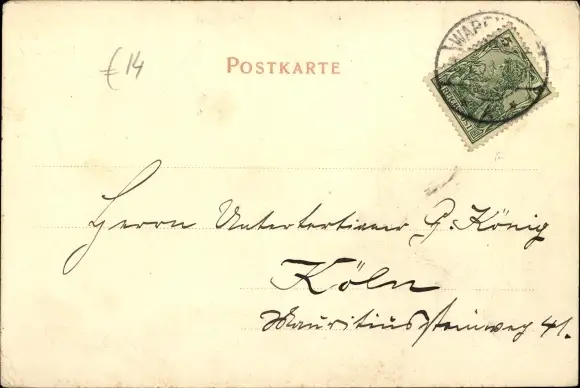 £14
POSTKARTE
WAREN
REICHSPOST
Herrn Untertertianer G. König
Köln
Mauritiussteinweg 41.